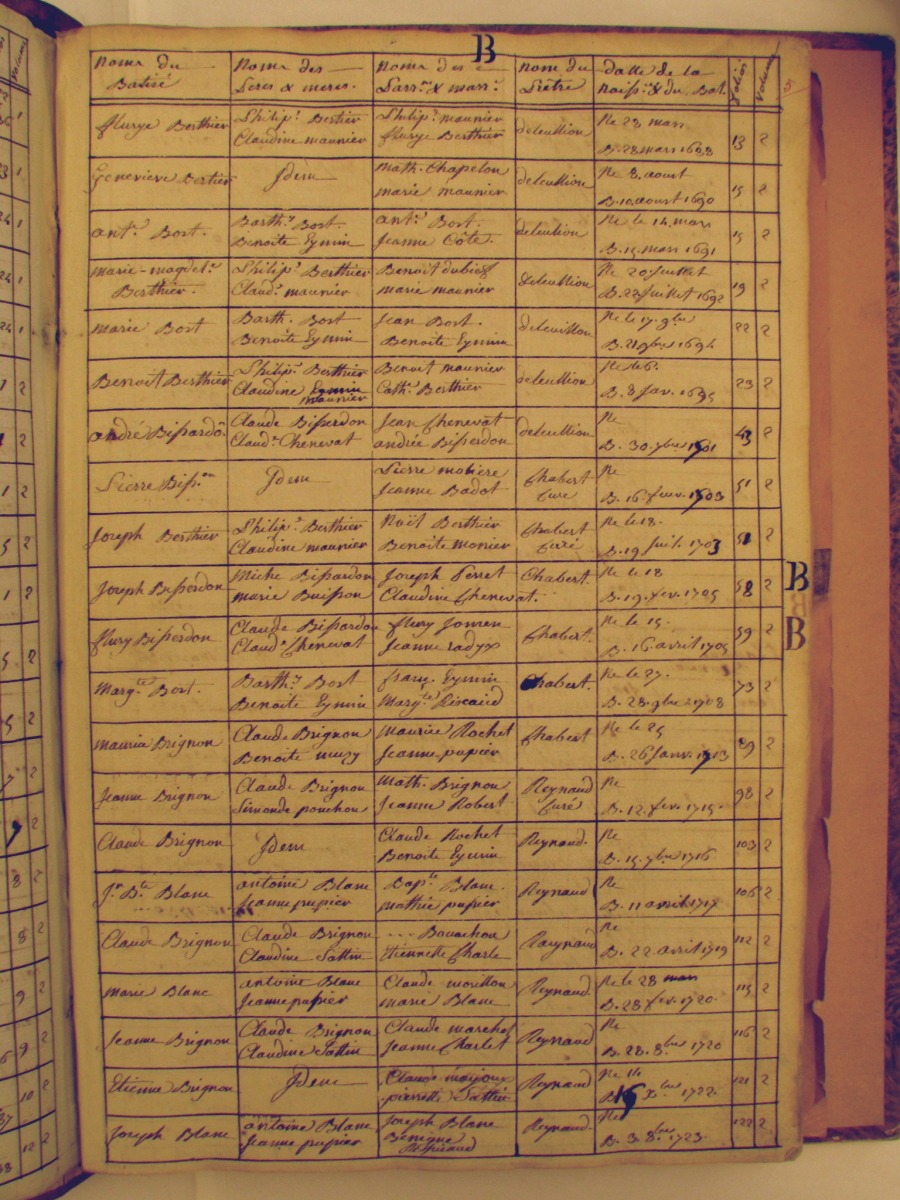 B
noms du Batisé
noms des Peres & meres.
noms des Parr.ns & marr.
nom du Prêtre
datte de la naiss: & du Bat.
folios
Volume
flurye Berthier
Philip.e Bertier
Claudine maunier
Philip.e maunier
flurye Berthier
deleullion
Ne 28 mars
B. 28 mars 1688
13
2
Genevieve Bertier
Idem
Math. Chapelon
marie maunier
deleullion
Ne 8. aoust
B. 10. aoust 1690
15
2
ant.e Bort.
Barth.y Bort.
Benoite Eymin
ant.e Bort.
Jeanne Côte.
deleullion
Ne le 14. mars
B. 15. mars 1691
15
2
marie-magdel.e Berthier.
Philip.e Berthier
Claud.e maunier
Benoit
marie maunier
deleullion
Ne 20. Juillet
B. 22 Juillet 1692
19
2
marie Bort
Barth. Bort
Benoite Eymin
Jean Bort.
Benoite Eymin
deleullion
Ne le 17. 9bre
B. 21. 9bre 1694
22
2
Benoit Berthier
Philip.e Berthier
Claudine Eymin maunier
Benoit maunier
Cath.e Berthier
deleullion
Ne le 6.
B. 8 Jan. 1695
23
2
andré Bissardon
Claude Bisserdon
Claud.e Chenevat
Jean Chenevat
andrée Bisserdon
deleullion
Ne
B. 30. 7bre 1701
43
2
Pierre Biss.on
Idem
Pierre moliere
Jeanne Badot
Chabert Curé
Ne
B. 16. fevr. 1703
51
2
Joseph Berthier
Philip.e Berthier
Claudine maunier
Noël Berthier
Benoite Monier
Chabert Curé
Ne le 18.
B. 19. Juil. 1703
51
2
Joseph Bisserdon
Miche Bissardon
marie Buisson
Joseph Perret
Claudine Chenevat.
Chabert
Ne le 18
B. 19. fev. 1705
58
2
B
flury Bisserdon
Claude Bissardon
Claud.e Chenevat
flury Jomen
Jeanne radyx
Chabert.
Ne le 15.
B. 16. avril 1705
59
2
B
Marg.te Bort.
Barth.y Bort
Benoite Eymin
franç. Eymin
Marg.te
Chabert.
Ne le 27.
B. 28. 9bre 1708
73
2
maurice Brignon
Claude Brignon
Benoite muzy
maurice Rochet
Jeanne pupier
Chabert
Ne le 25
B. 26 Janv. 1713
89
2
Jeanne Brignon
Claude Brignon
Simonde pouchon
Math. Brignon
Jeanne Robert
Reynaud Curé
Ne
B. 12. fev. 1715.
98
2
Claude Brignon
Idem
Claude Rochet
Benoite Eymin
Reynaud.
Ne
B. 15. 7bre 1716
103
2
J.n B.te Blanc
antoine Blanc
Jeanne pupier
Bapt.te Blanc.
mathie pupier
Reynaud
Ne
B. 11 avril 1717
106
2
Claude Brignon
Claude Brignon
Claudine Sattin
... Bouachon
Etiennette Charle
Raynaud
Ne
B. 22 avril 1719
112
2
Marie Blanc
antoine Blanc
Jeanne pupier
Claude morillon
marie Blanc
Reynaud.
Ne le 28 mars
B. 28 fev. 1720.
115
2
Jeanne Brignon
Claude Brignon
Claudine Sattin
Claude marchal
Jeanne Charlet
Reynaud
Ne
B. 28. 8bre 1720
116
2
Etienne Brignon
Idem
Claude
pierrette Sattin
Reynaud
Ne 14
B. 15 Xbre 1722.
121
2
Joseph Blanc
antoine Blanc
Jeanne pupier
Joseph Blanc
Benigne
Reynaud.
Ne
B. 3. 8bre 1723.
122
2